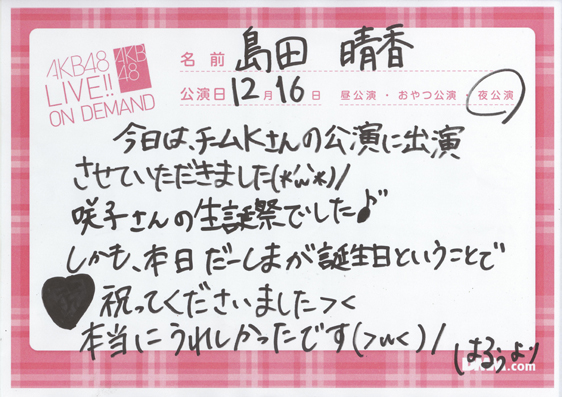 AKB48
LIVE!!
ON DEMAND
AKB
48
名前 島田 晴香
公演日 12月16日 昼公演・おやつ公演・夜公演
今日は、チームKさんの公演に出演
させていただきました(*'ω'*)/
咲子さんの生誕祭でした♪
しかも、本日だーしまが誕生日ということで
祝ってくださいました><
本当にうれしかったです(>ω<)/
はるぅより
.com